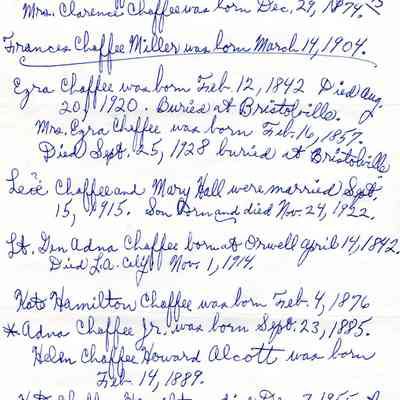 Mrs. Clarence Chaffee was born Dec. 29, 1874.
Frances Chaffee Miller was born March 14, 1904.
Ezra Chaffee was born Feb. 12, 1842 Died Aug.
20, 1920. Buried at Bristolville.
Mrs. Ezra Chaffee was born Feb. 16, 1857.
Died Sept. 25, 1928 buried at Bristolville
Chaffee and Mary Hall were married Sept.
15, 1915. Son Born and died Nov. 24, 1922.
Lt. Gen Adna Chaffee born at Orwell April 14, 1842.
Died L.A. City Nov. 1, 1914.
Kate Hamilton Chaffee was born Feb. 4, 1876
* Adna Chaffee Jr. was born Sept. 23, 1885.
Helen Chaffee Howard Alcott was born
Feb. 14, 1889.